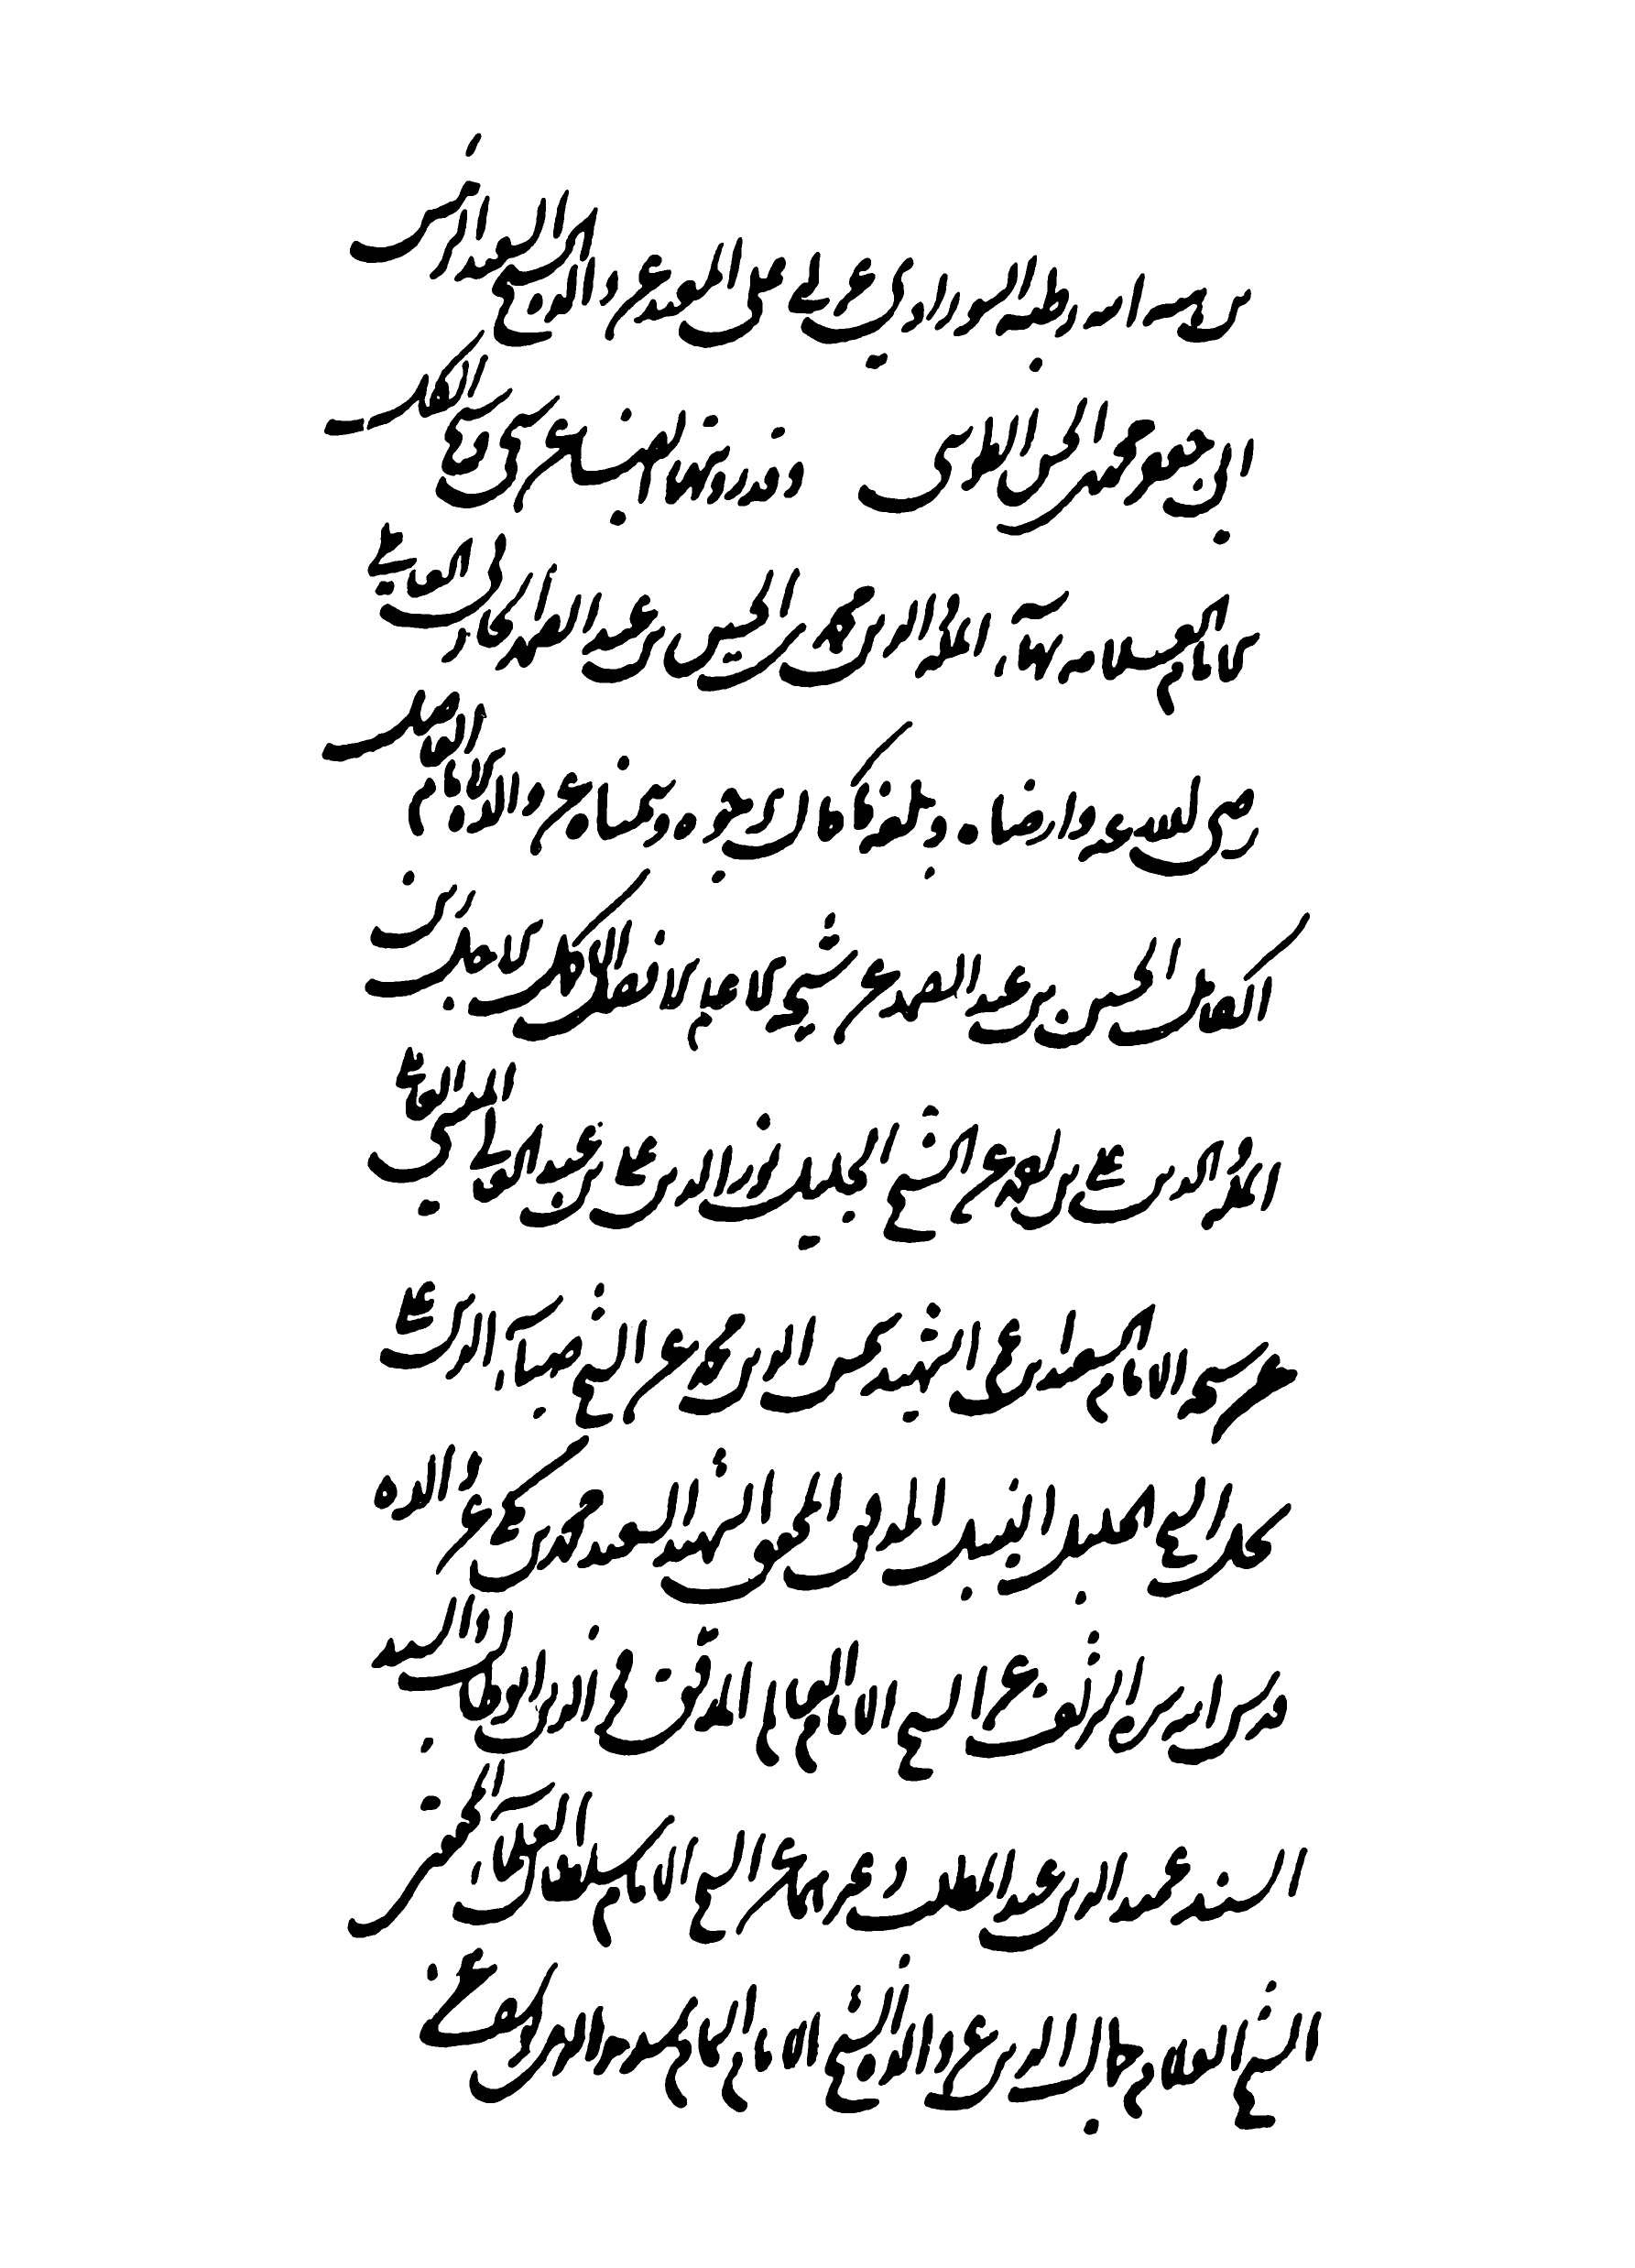 بن هبة الله بن رطبة السوراوي عن أبي علي المفيد عن والده الشيخ السعيد
ابي جعفر محمد بن الحسن الطوسي وقد رويتها ايضا عن شيخي وسيدي
الامام العلامة بهاء الملة والدين محمد بن الحسين بن عبد الصمد الحارثي العاملي
رضي الله عنه وارضاه وبلغه كمال يرجوه ويتمناه عن والده الامام الفاضل
الكامل الحسين بن عبد الصمد عن شيخي الاعلم الافضل الاكمل الاجل زين
الملة والدين علي بن احمد عن الشيخ الجليل نور الدين علي بن عبد العالي الميسي العاملي
عن شيخه الامام السعيد ابن عم الشهيد شمس الدين محمد عن الشيخ ضياء الدين علي
نجل الشيخ الجليل النبيل المدقق المحقق الشهيد السعيد محمد بن مكي عن والده
قدس الله سره عن الشيخ الامام الهمام المدقق فخر الدين ابو طالب والسيد
السند عميد الدين عبد المطلب وغيرهما عن الشيخ الامام سلطان العلماء
الشيخ العلامة جمال الدين عن والده الشيخ الامام الهمام سديد الدين يوسف عن